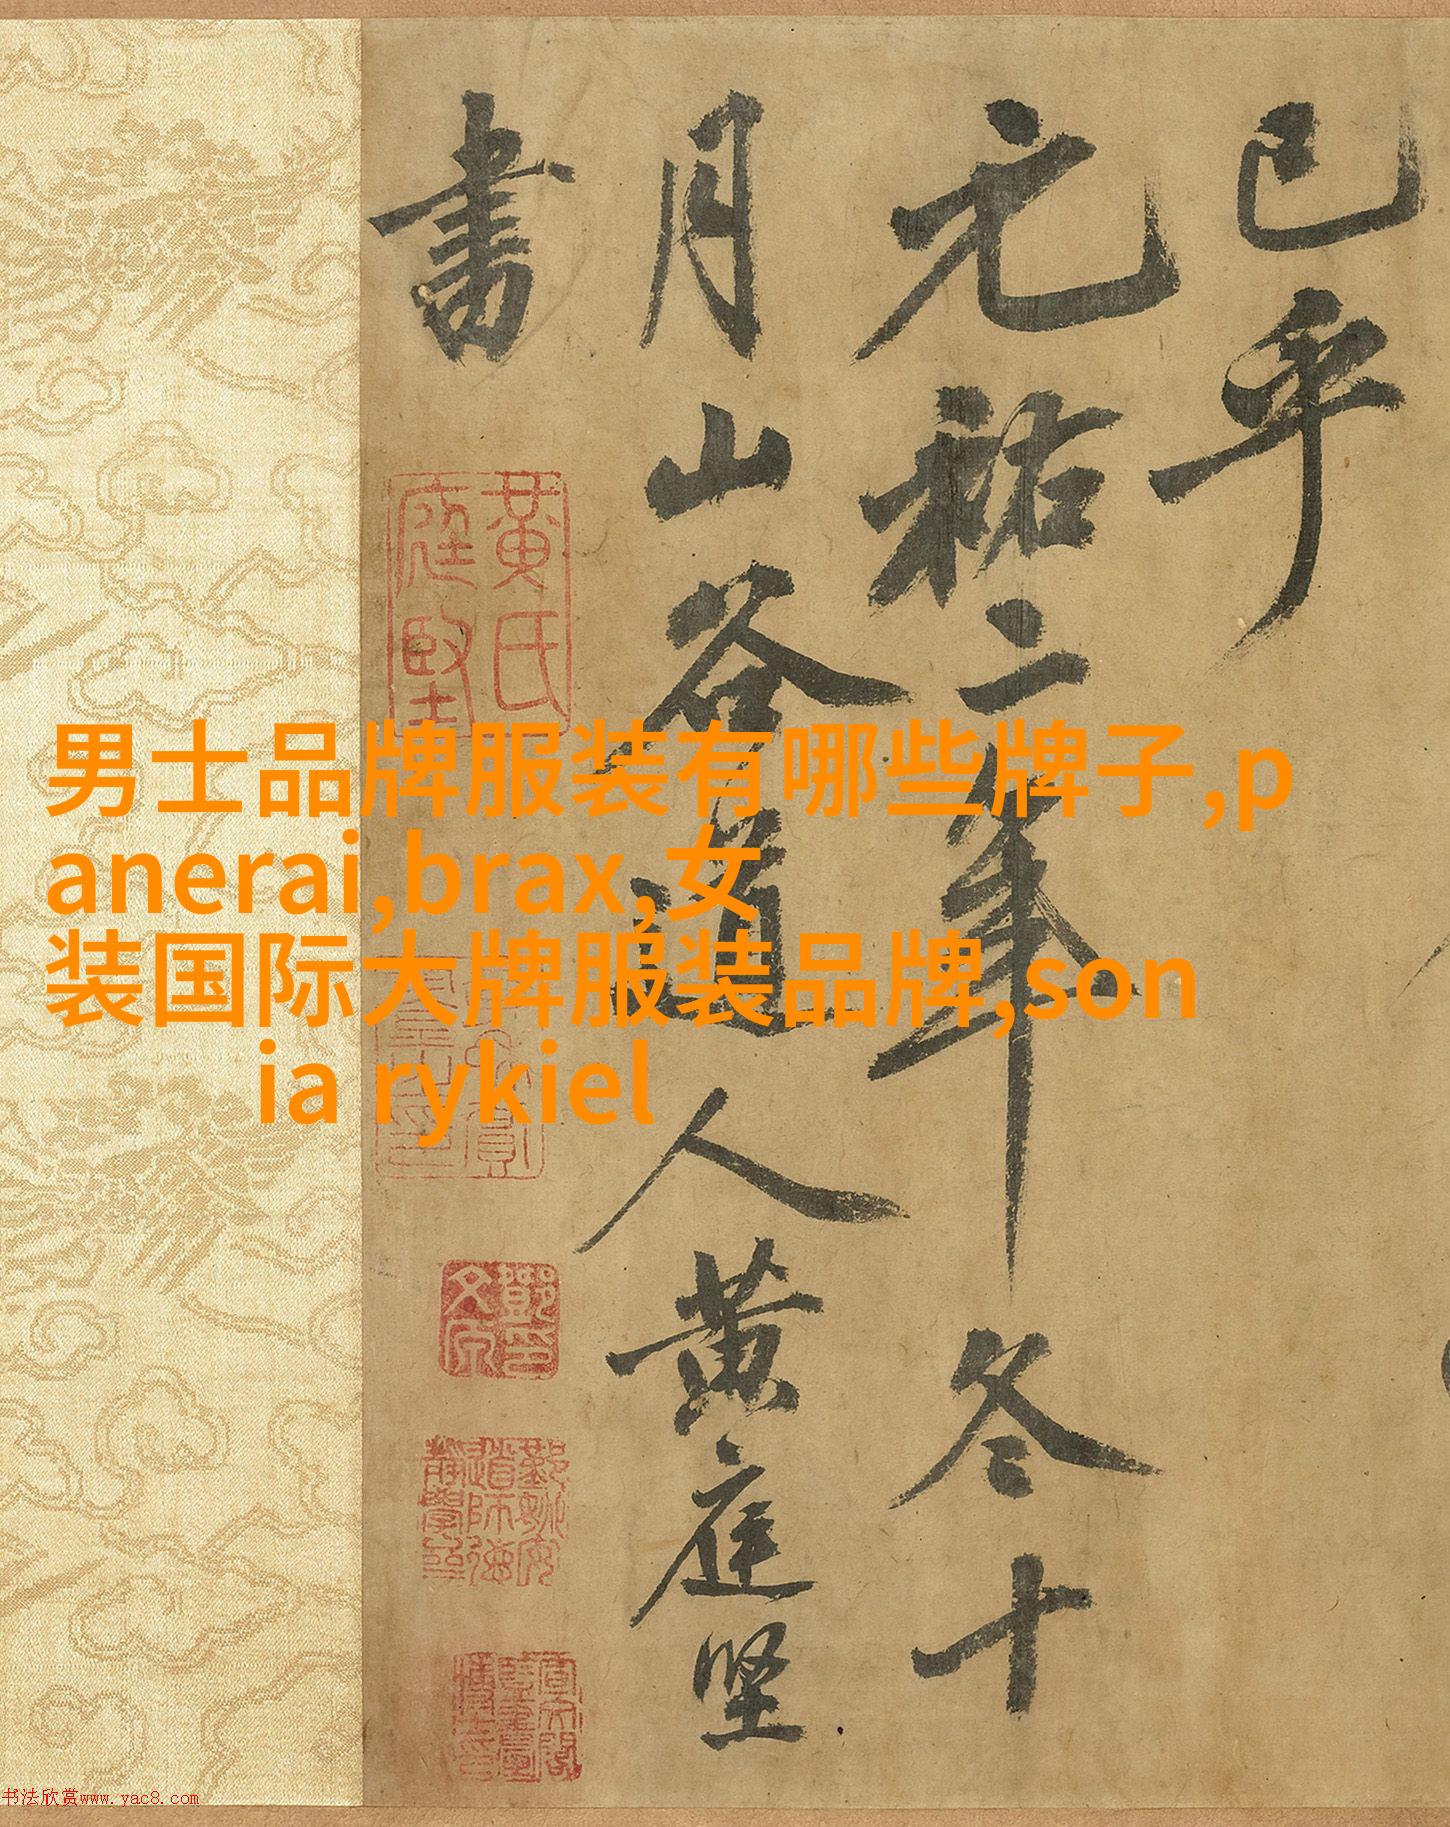 已乎
元祐二年冬十
月山谷道人黄庭坚
書
黄氏
庭堅
男士品牌服装有哪些牌子,p
anerai,brax,女
装国际大牌服装品牌,son
ia rykiel
书法欣赏www.yac8.com